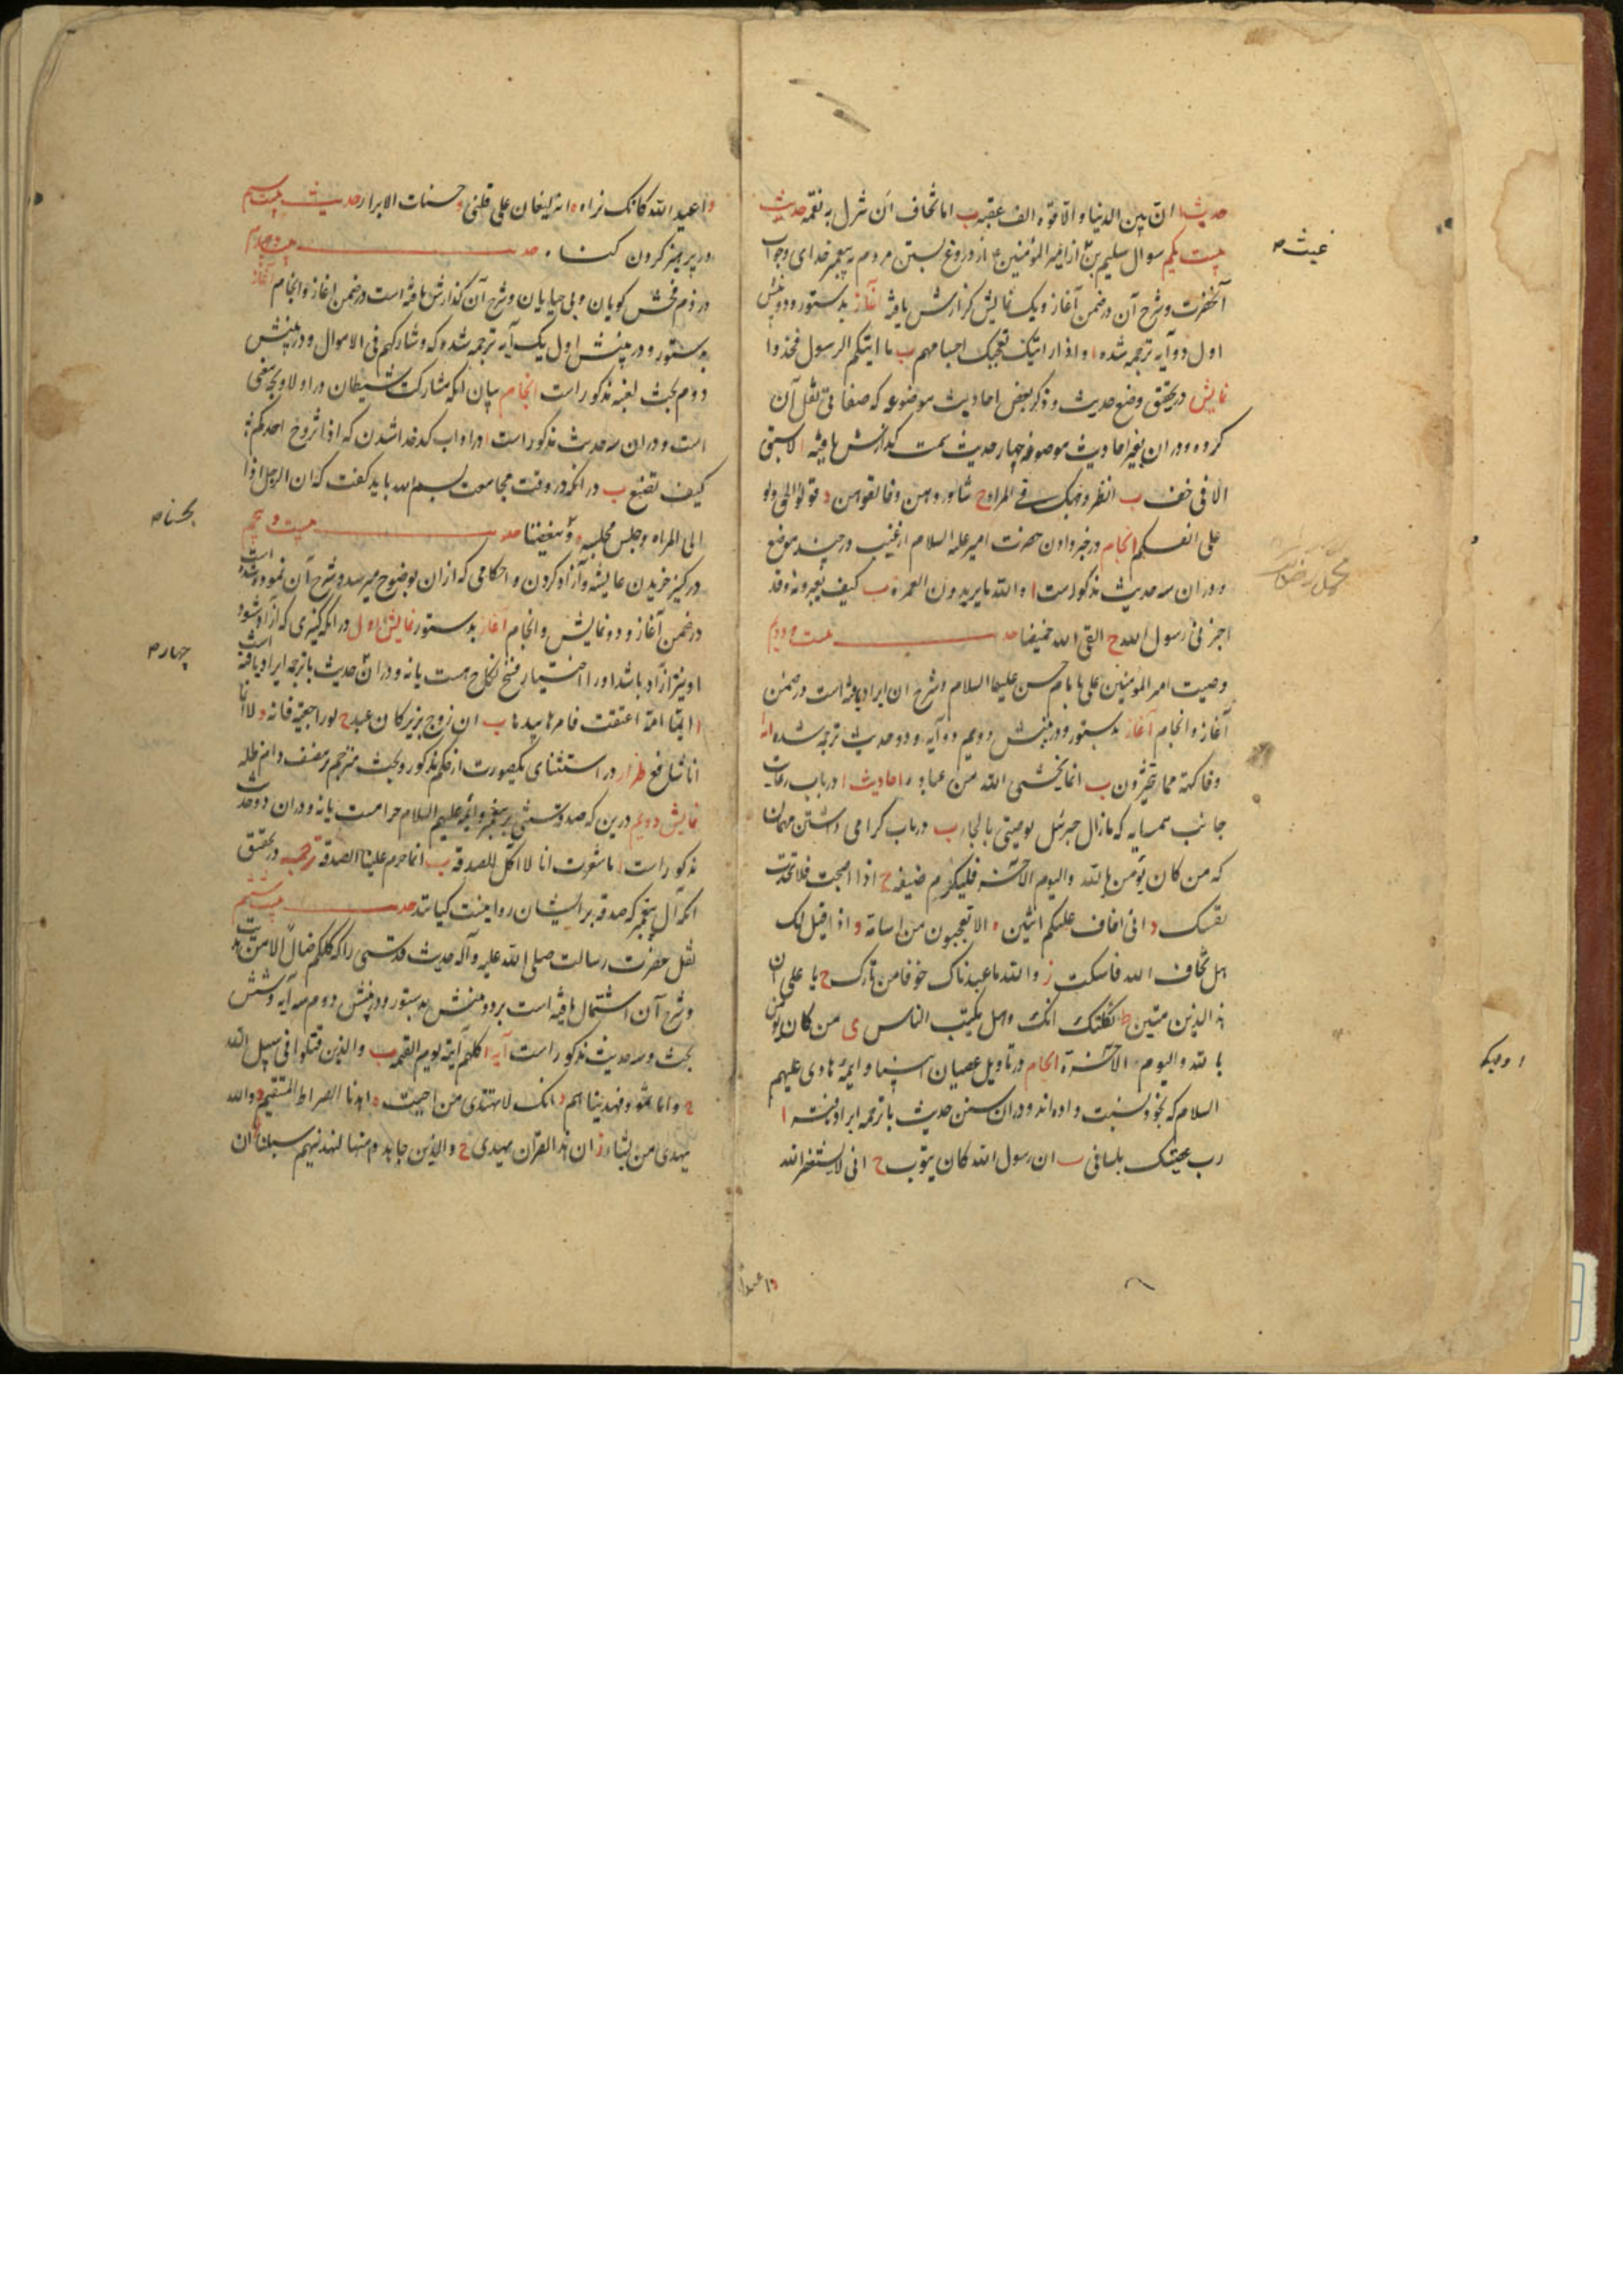 حدیث ا ان بین الدنیا و الآخرة الف عقبه ب اما تخاف ان تنزل به نقمه حدیث
بیست یکم سوال سلیم بن از امیر المؤمنین از دروغ بستن مردم به پیغمبر خدای و جواب
آنحضرت و شرح آن در ضمن آغاز و یک نمایش گزارش یافته آغاز بدستور و در بینش
اول دو آیه ترجمه شده ا و اذا رایتک تعجبک اجسامهم ب ما اتیکم الرسول فخذوا
نمایش در تحقیق وضع حدیث و ذکر بعض احادیث موضوعه که صغانی نقل آن
کرده و در ان بغیر احادیث موضوعه چهار حدیث سمت گذارش یافته ا لا سبق
الا فی خف ب انظر و جهک فی المراة ح شاوروهن و خالفوهن د قولوا الحق ولو
علی انفسکم انجام در خبر دادن حضرت امیر علیه السلام از غیب در چند موضع
و در ان سه حدیث مذکور است ا والله ما یریدون العمرة ب کیف بعبرونه وقد
اخبرنی رسول الله ح القی الله حنیفا حد بیست و دویم
وصیت امیر المؤمنین علی بامام حسن علیهما السلام و شرح ان ایراد یافته است در ضمن
آغاز و انجام آغاز بدستور و در بینش دویم دو آیه و دو حدیث ترجمه شده آیه ا
و فاکهة مما یتخیرون ب انما یخشی الله من عباده احادیث ا در باب رعایت
جانب همسایه که مازال جبرئیل یوصینی بالجار ب در باب گرامی داشتن مهمان
که من کان یؤمن بالله والیوم الآخر فلیکرم ضیفه ح اذا اصبحت فلا تحدث
نفسک د انی اخاف علیکم اثنین ه الا تعجبون من اسامة و اذا قیل لک
هل تخاف الله فاسکت ز والله ما عبدناک خوفا من نارک ح یا علی ان
هذا الدین متین ط ثکلتک امک وهل یکب الناس ی من کان یؤمن
بالله والیوم الآخر انجام در تاویل عصیان انبیا و ایمهٔ هادی علیهم
السلام که بخود نسبت داده اند و در ان سنن حدیث با ترجمه ایراد یافته ا
رب عصیتک بلسانی ب ان رسول الله کان یتوب ح انی لاستغفر الله
و اعبد
غیث
و اعبد الله کانک تراه ه انه لیغان علی قلبی و حسنات الابرار حدیث بیست سیم
در پرهیز کردن گناه حد بیست و چهارم
در ذم فحش گویان و بی حیایان و شرح آن گذارش یافته است در ضمن اغاز و انجام آغاز
بدستور و در بینش اول یک آیه ترجمه شده که و شارکهم فی الاموال و در بینش
دوم بحث لغیه مذکور است انجام بیان انکه مشارکت شیطان در اولاد بچه معنی
است و در ان سه حدیث مذکور است ا در اداب کدخدا شدن که اذا تزوج احدکم
کیف تصنع ب در انکه در وقت مجامعت بسم الله باید گفت که ان الرجل اذا
الی المراه و جلس مجلسه و تبغضنا حد بیست و پنجم
در کنیز خریدن عایشه و آزاد کردن و احکامی که از ان بوضوح میرسد و شرح آن نموده شده است
در ضمن آغاز و دو نمایش و انجام آغاز بدستور نمایش اول در انکه کنیزی که آزاد شود
او نیز آزاد باشد او را اختیار فسخ نکاح هست یا نه و در ان حدیث با ترجمه ایراد یافته است
ا ایما امة اعتقت فامرها بیدها ب ان زوج بریر کان عبد ح لو راجعتیه فانه د لا انما
انا شافع طراز در استثنای یکصورت از حکم مذکور و بحث مترجم بر مصنف دام ظله
نمایش دویم درین که صدقه سنتی بر پیغمبر و ایمه علیهم السلام حرامست یا نه و در ان دو حدیث
مذکور است ا ما شعرت انا لا اکل الصدقه ب انما حرم علینا الصدقه ترجمه در تحقیق
انکه آل پیغمبر که صدقه بر ایشان روا نیست کیانند حد بیست ششم
نقل حضرت رسالت صلی الله علیه و آله حدیث قدسی را که کلکم ضال الا من هدیت
و شرح آن اشتمال یافته است بر دو بینش بدستور و در بینش دوم سه آیه و شش
بحث و سه حدیث مذکور است آیه ا کلهم آتیه یوم القیمه ب والذین قتلوا فی سبیل الله
ح و اما ثمود فهدیناهم د انک لا تهتدی من احببت ه اهدنا الصراط المستقیم و والله
یهدی من یشاء ز ان هذا القرآن یهدی ح والذین جاهدوا فینا لنهدینهم سبلنا ان
چهارم